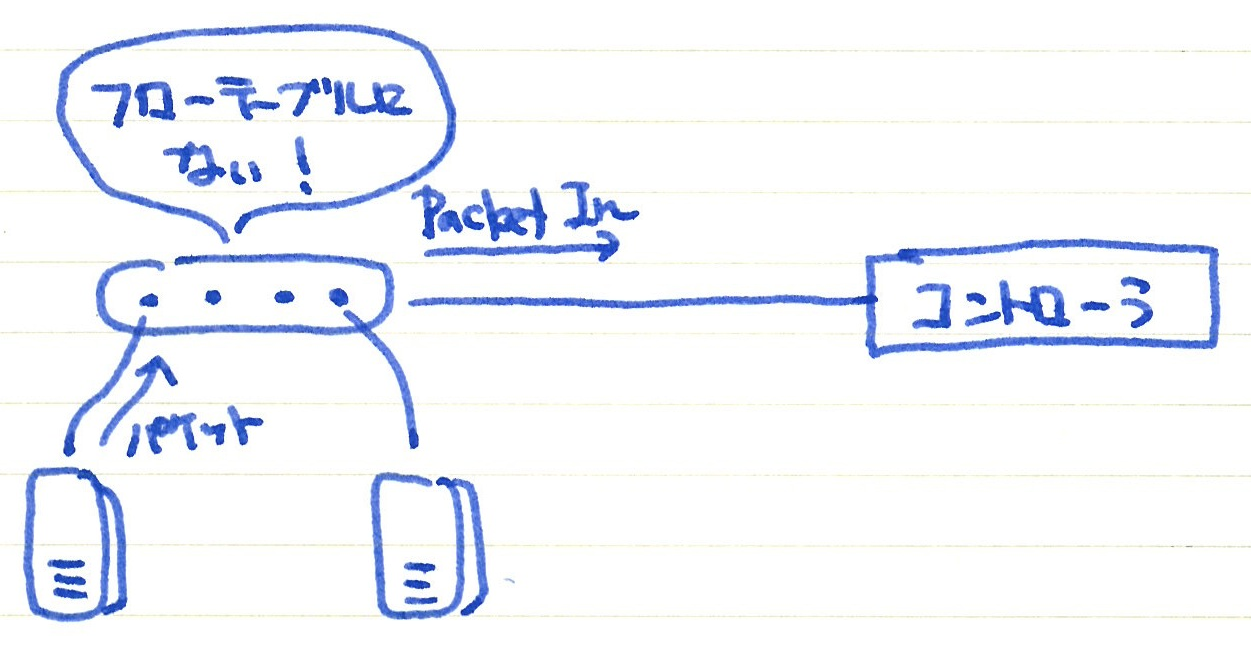 フローテーブルに
ない！
Packet In
コントローラ
パケット